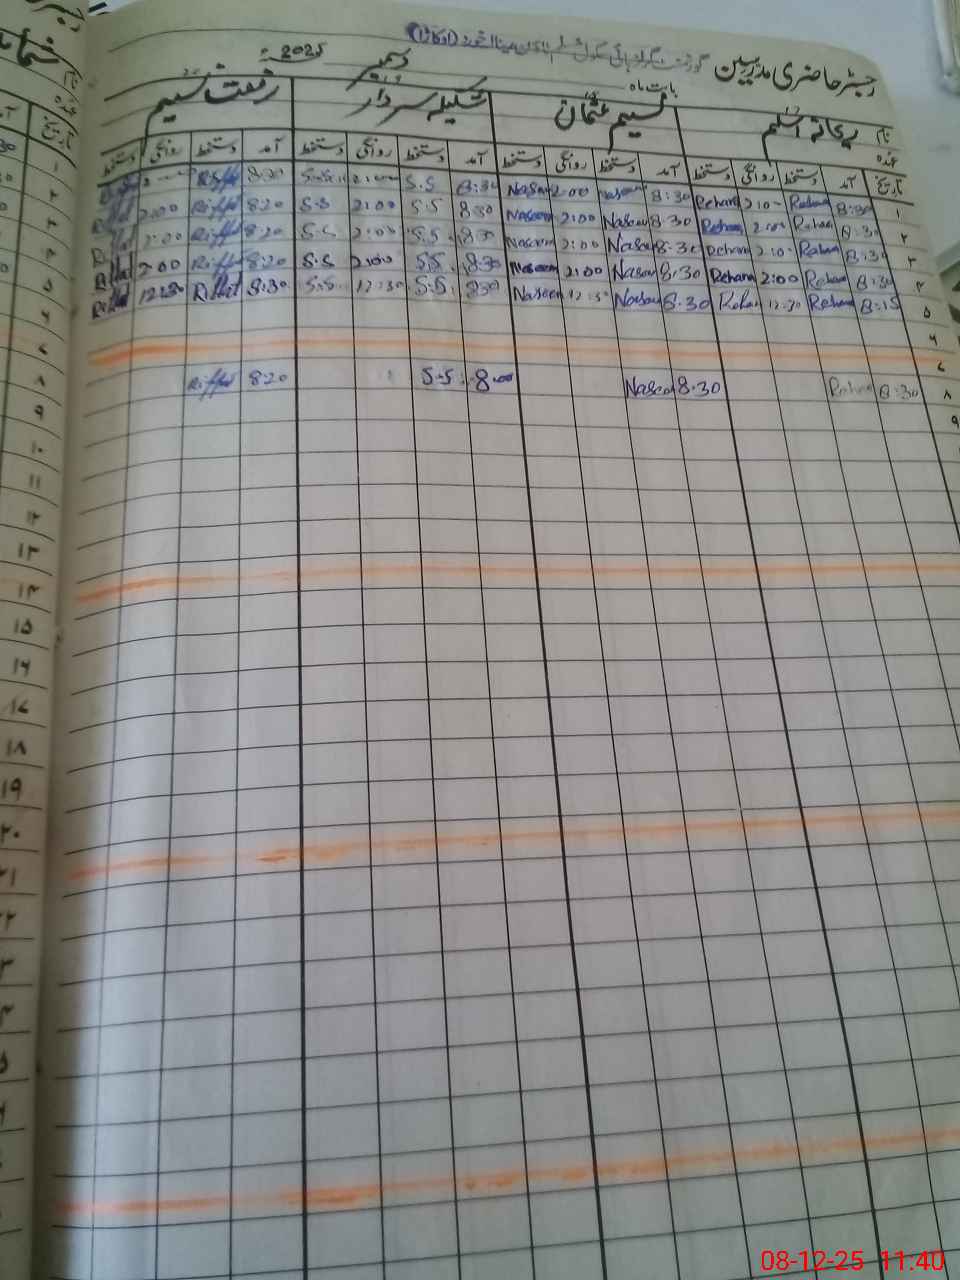 رجسٹر حاضری مدرسین گورنمنٹ گرلز ہائی سکول
بابت ماہ دسمبر 2025ء
نام ریحانہ اسلم نسیم عثمان شکیلہ سردار رفعت نسیم
عہدہ
تاریخ آمد دستخط روانگی دستخط آمد دستخط روانگی دستخط آمد دستخط روانگی دستخط آمد دستخط روانگی دستخط
۱ 8:30 Rehan 2:00 Rehan 8:30 Naseem 2:00 Naseem 8:30 S.S 2:00 S.S 8:20 Riffat
۲ 8:30 Rehan 2:00 Rehan 8:30 Naseem 2:00 Naseem 8:30 S.S 2:00 S.S 8:20 Riffat 2:00 Riffat
۳ 8:30 Rehan 2:00 Rehan 8:30 Naseem 2:00 Naseem 8:30 S.S. 2:00 S.S. 8:20 Riffat 2:00 Riffat
۴ 8:30 Rehan 2:00 Rehan 8:30 Naseem 2:00 Naseem 8:30 S.S. 2:00 S.S. 8:20 Riffat 2:00 Riffat
۵ 8:15 Rehan 12:30 Rehan 8:30 Naseem 12:30 Naseem 8:30 S.S. 12:30 S.S. 8:30 Riffat 12:30 Riffat
۶
۷
۸ 8:30 Rehan 8:30 Naseem 8:00 S.S. 8:20 Riffat
۹
تاریخ
۱
۲
۳
۴
۵
۶
۷
۸
۹
۱۰
۱۱
۱۲
۱۳
۱۴
۱۵
۱۶
۱۷
۱۸
۱۹
۲۰
۲۱
۲۲
08-12-25 11:40